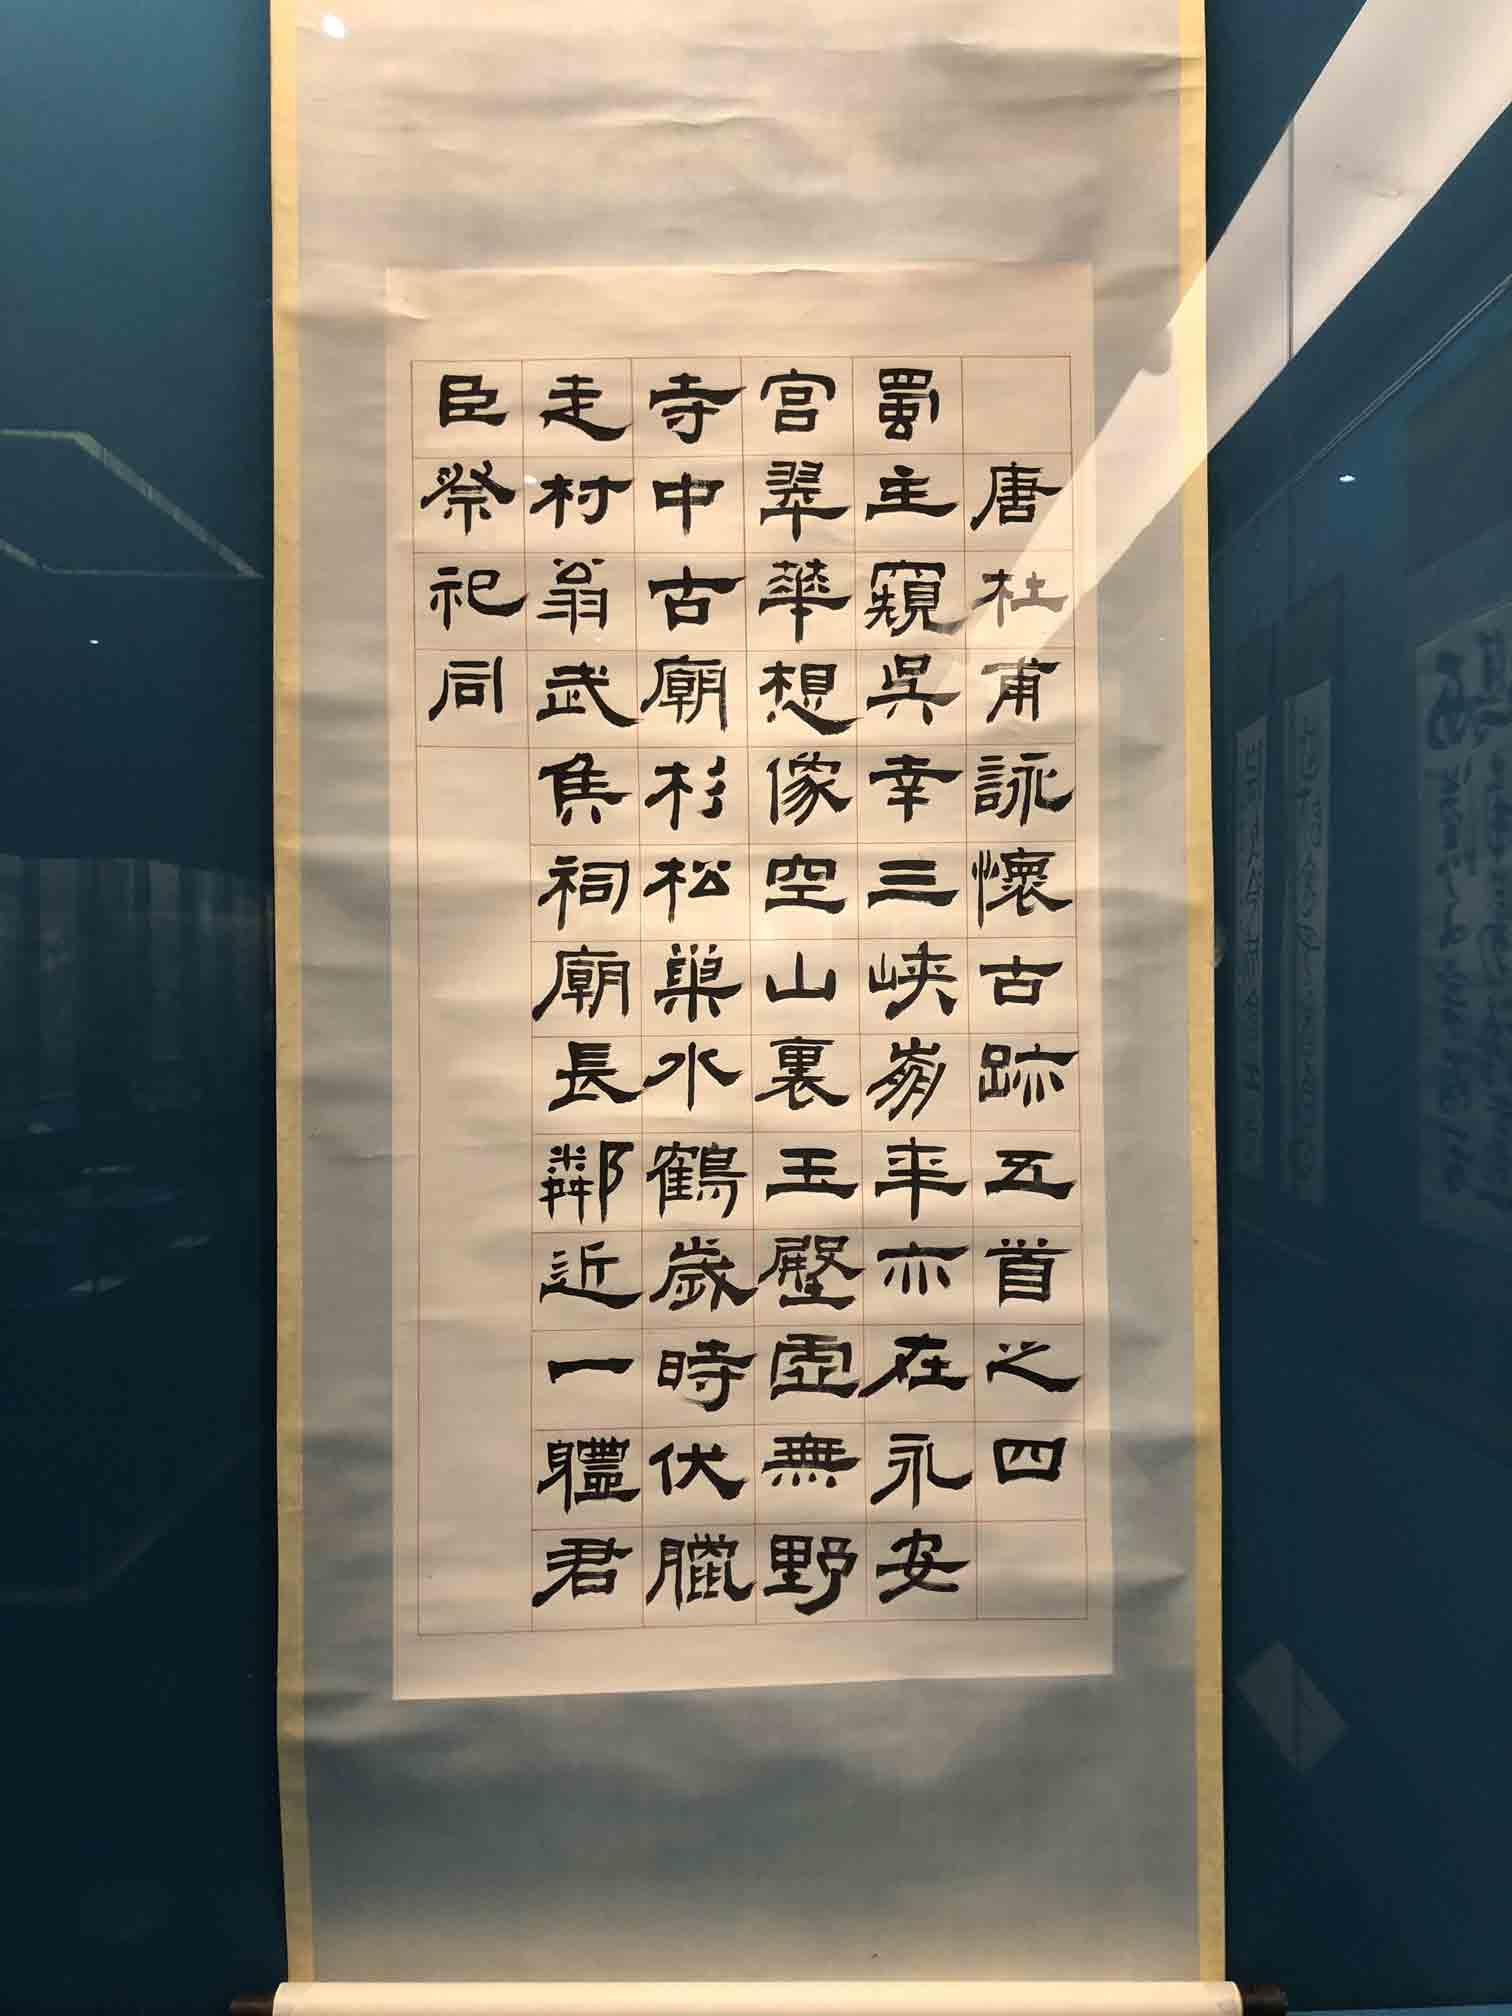 唐杜甫詠懷古跡五首之四
蜀主窺吳幸三峽崩年亦在永安
宮翠華想像空山裏玉殿虛無野
寺中古廟杉松巢水鶴歲時伏臘
走村翁武侯祠廟長鄰近一體君
臣祭祀同